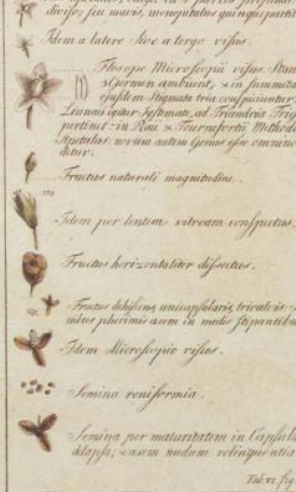 diviso, seu mavis, monopetalus quinquepartit
Idem a latere sive a tergo visus.
Flos ope Microscopii visus. Stam
Germen ambiunt, & in summita
ejusdem Stigmata tria conspiciuntur
Linnæi igitur Systemate, ad Triandria Trig
pertinet: in Raii & Tournefortii Methodo
Apetalus. novum autem Genus esse omnino
detur.
Fructus naturali magnitudine.
Idem per lentem vitream conspectus.
Fructus horizontaliter dissectus.
Fructus dehiscens, unicapsularis, trivalvis
nibus plurimis acem in medio stipantibus
Idem Microscopio visus.
Semina reniformia.
Semina per maturitatem in Capsula
delapsa; nudum relinquentia
Tab. VI. fig